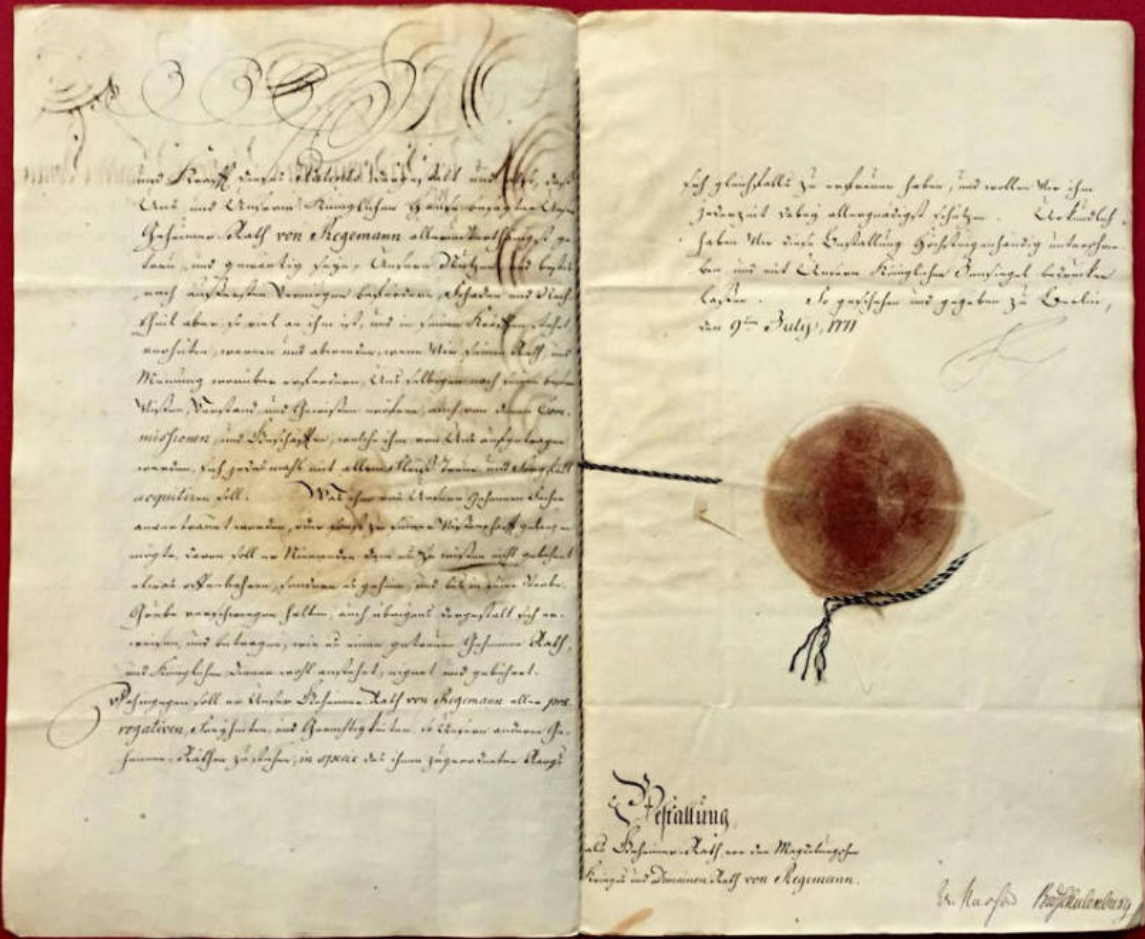 und Krafft dieses Patents dergestalt und also, daß
Uns und Unserm Königlichen Hause besagter Unser
Geheimer-Rath von Regemann allerunterthänigst ge-
treu, und gewärtig seyn, Unsern Nutzen und bestes
nach äußersten Vermögen befördern, Schaden und Nach-
theil aber, so viel an ihm ist, und in seinen Kräfften stehet
verhüten, warnen und abwenden, wenn Wir seinen Rath, und
Meinung worüber erfordern, Uns selbigen nach seinem besten
Wißen, Verstand und Gewißen eröfnen, auch von denen Com-
missionen, und Geschäfften, welche ihm von Uns aufgetragen
werden, sich jedesmahl mit allem Fleiß Treue und Sorgfalt
acquitiren soll. Was ihm von Unsern Geheimen Sachen
anvertrauet worden, oder sonst zu seiner Wißenschafft gelangen
mögte, davon soll er Niemanden dem es zu wißen nicht gebühret
etwas offenbahren, sondern es geheim, und bis in seine Sterbe-
Grube verschwiegen halten, auch übrigens dergestalt sich er-
weisen, und betragen, wie es einem getreuen Geheimen Rath,
und Königlichen Diener wohl anstehet, eignet und gebühret.
Dahingegen soll er Unser Geheimer-Rath von Regemann aller præ-
rogativen, Freyheiten, und Gerechtigkeiten, so Unsern andern Ge-
heimen-Räthen zustehen, in specie des ihnen zugeordneten Rangs
sich gleichfalls zu erfreuen haben, und wollen Wir ihn
jederzeit dabey allergnädigst schützen. Urkundlich
haben Wir diese Bestallung Höchsteigenhändig unterschrie-
ben und mit Unserm Königlichen Innsiegel bedrucken
laßen. So geschehen und gegeben zu Berlin,
den 9ten July, 1771
Bestallung
als Geheimer-Rath vor den Magdeburgschen
Krieges und Domainen Rath von Regemann.